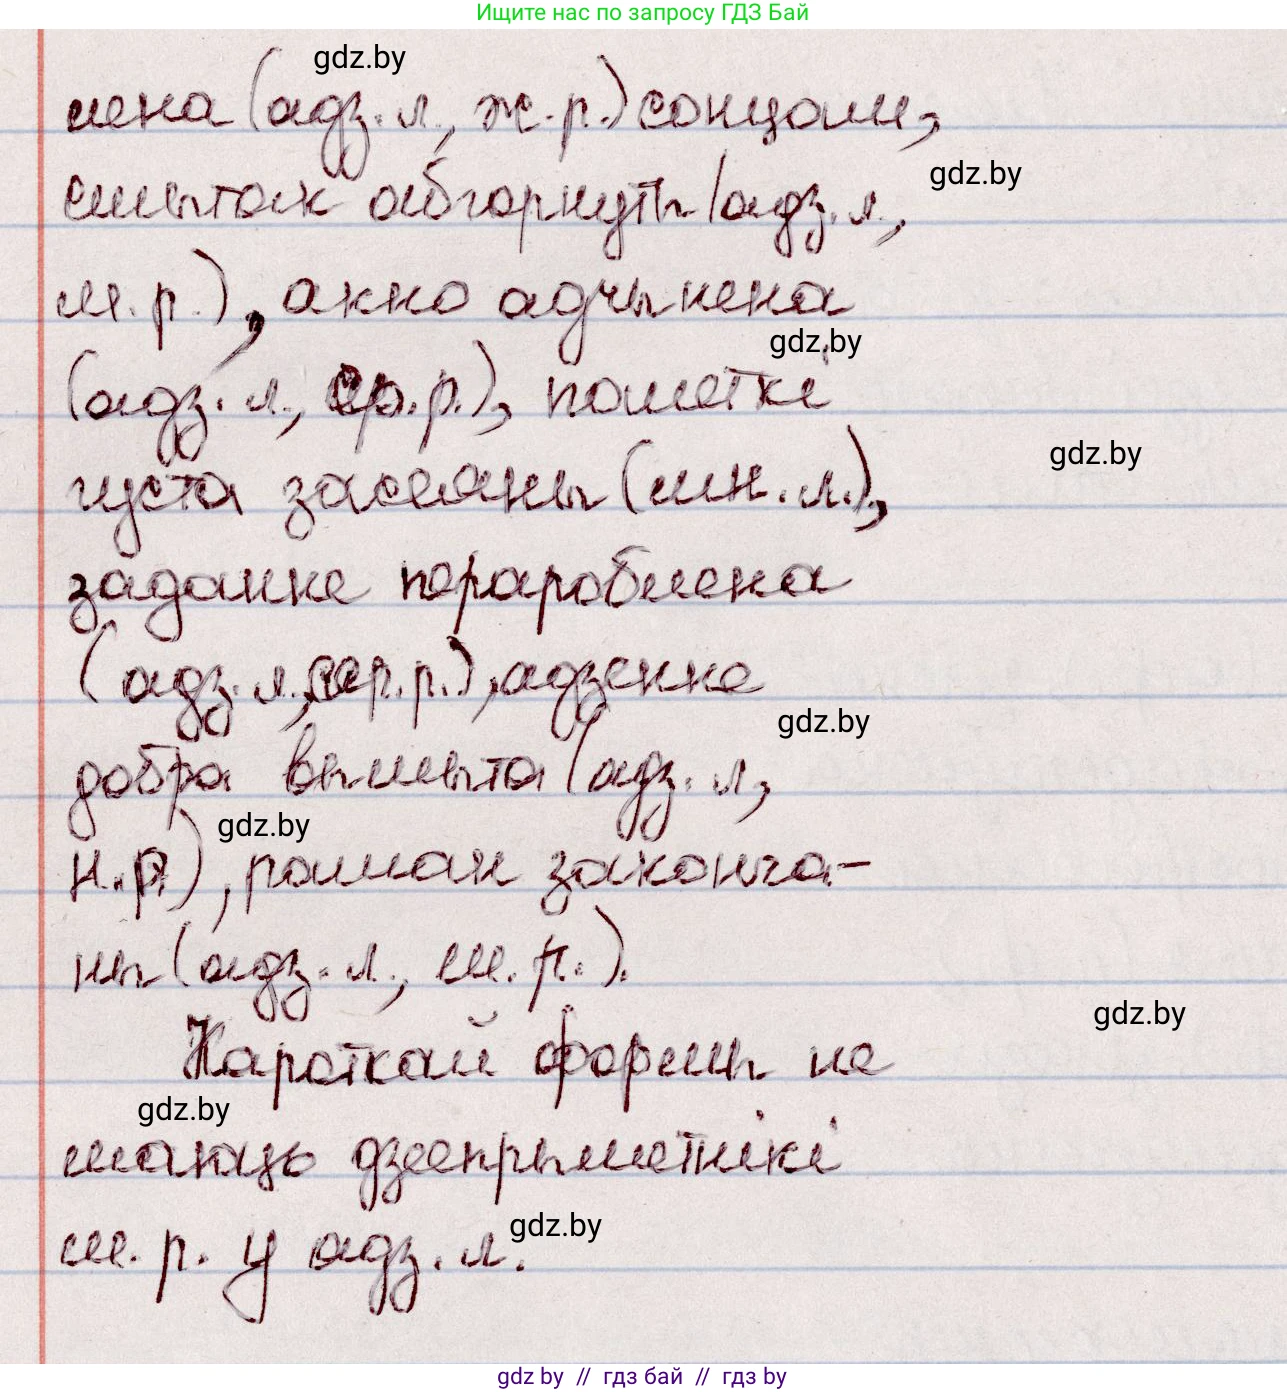 Ищите нас по запросу ГДЗ Бай
gdz.by
лена (адз. л., ж. р.) сонцам,
gdz.by
смытак абгорнуты (адз. л.,
м. р.), акно адчынена
gdz.by
(адз. л., ср. р.), паметкі
gdz.by
густа засеяны (мн. л.),
заданне перароблена
(адз. л., ср. р.), адзенне
gdz.by
добра вымыта (адз. л.,
gdz.by
н. р.), раман законча-
ны (адз. л., м. р.).
gdz.by
Кароткай формы не
gdz.by
маюць дзеепрыметнікі
gdz.by
м. р. у адз. л.
gdz.by // гдз бай // гдз by